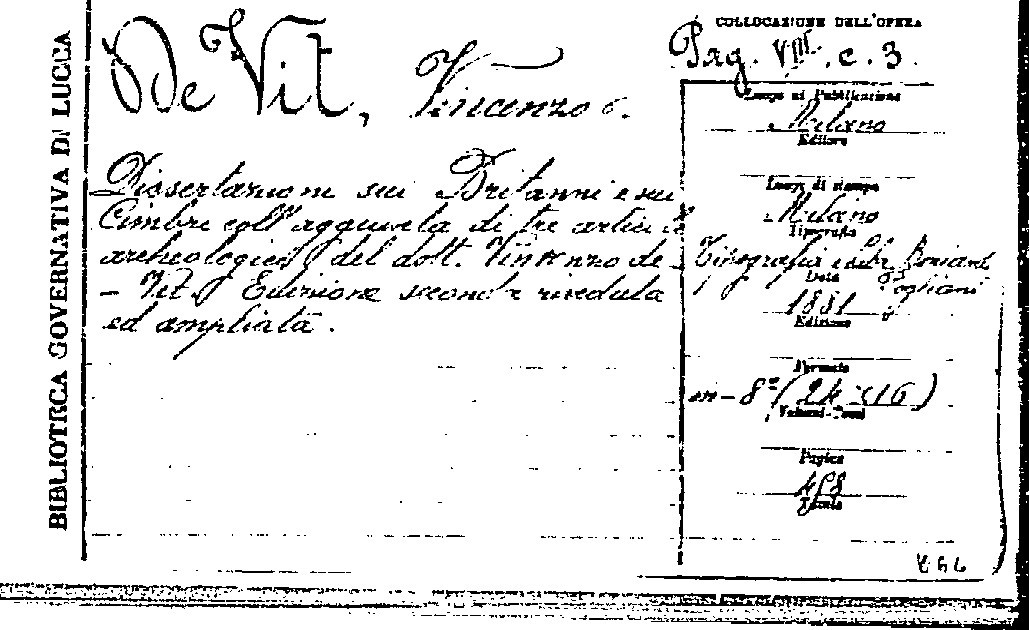 BIBLIOTECA GOVERNATIVA DI LUCCA
De Vit, Vincenzo
Dissertazioni sui Britanni e sui
Cimbri coll'aggiunta di tre articoli
archeologici del dott. Vincenzo de
- Vit. Edizione seconda riveduta
ed ampliata.
COLLOCAZIONE DELL'OPERA
Pag. VIII. c. 3.
Luogo di Pubblicazione
Milano
Editore
Luogo di stampa
Milano
Tipografia
Tipografia e Libr. Boniardi
Pogliani
Data
1881
Edizione
Formato
in-8° (24 x 16)
Volumi-Tomi
Pagine
Tavole